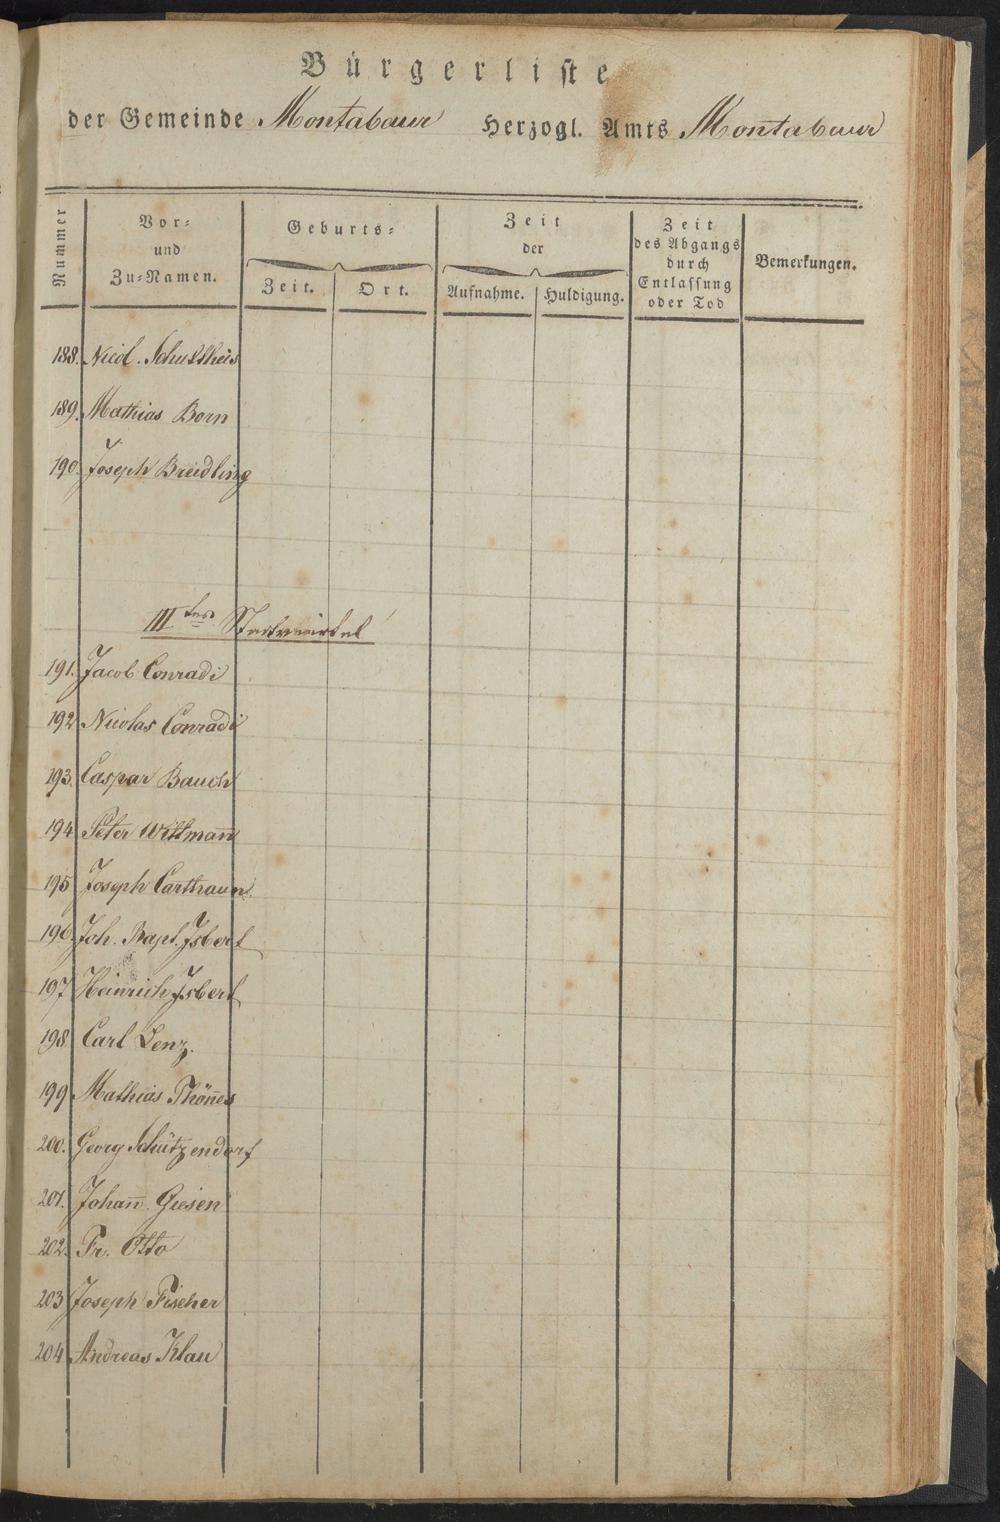 Bürgerliste
der Gemeinde Montabaur Herzogl. Amts Montabaur
Nummer
Vor-
und
Zu-Namen.
Geburts-
Zeit.
Ort.
Zeit
der
Aufnahme.
Huldigung.
Zeit
des Abgangs
durch
Entlassung
oder Tod
Bemerkungen.
188. Nicol. Schultheis
189. Mathias Born
190. Joseph Breidling
III
191. Jacob Conradi
192 Nicolas Conradi
193. Caspar Bauch
194 Peter Wittmann̄
195 Joseph Carthaun
196. Joh. Bapt. Isbert
197 Heinrich Isbert
198 Carl Lenz.
199 Mathias Thön̄es
200. Georg Schützendorf
201. Johan̄. Giesen
202. Fr. Otto
203 Joseph Fischer
204 Andreas Klau